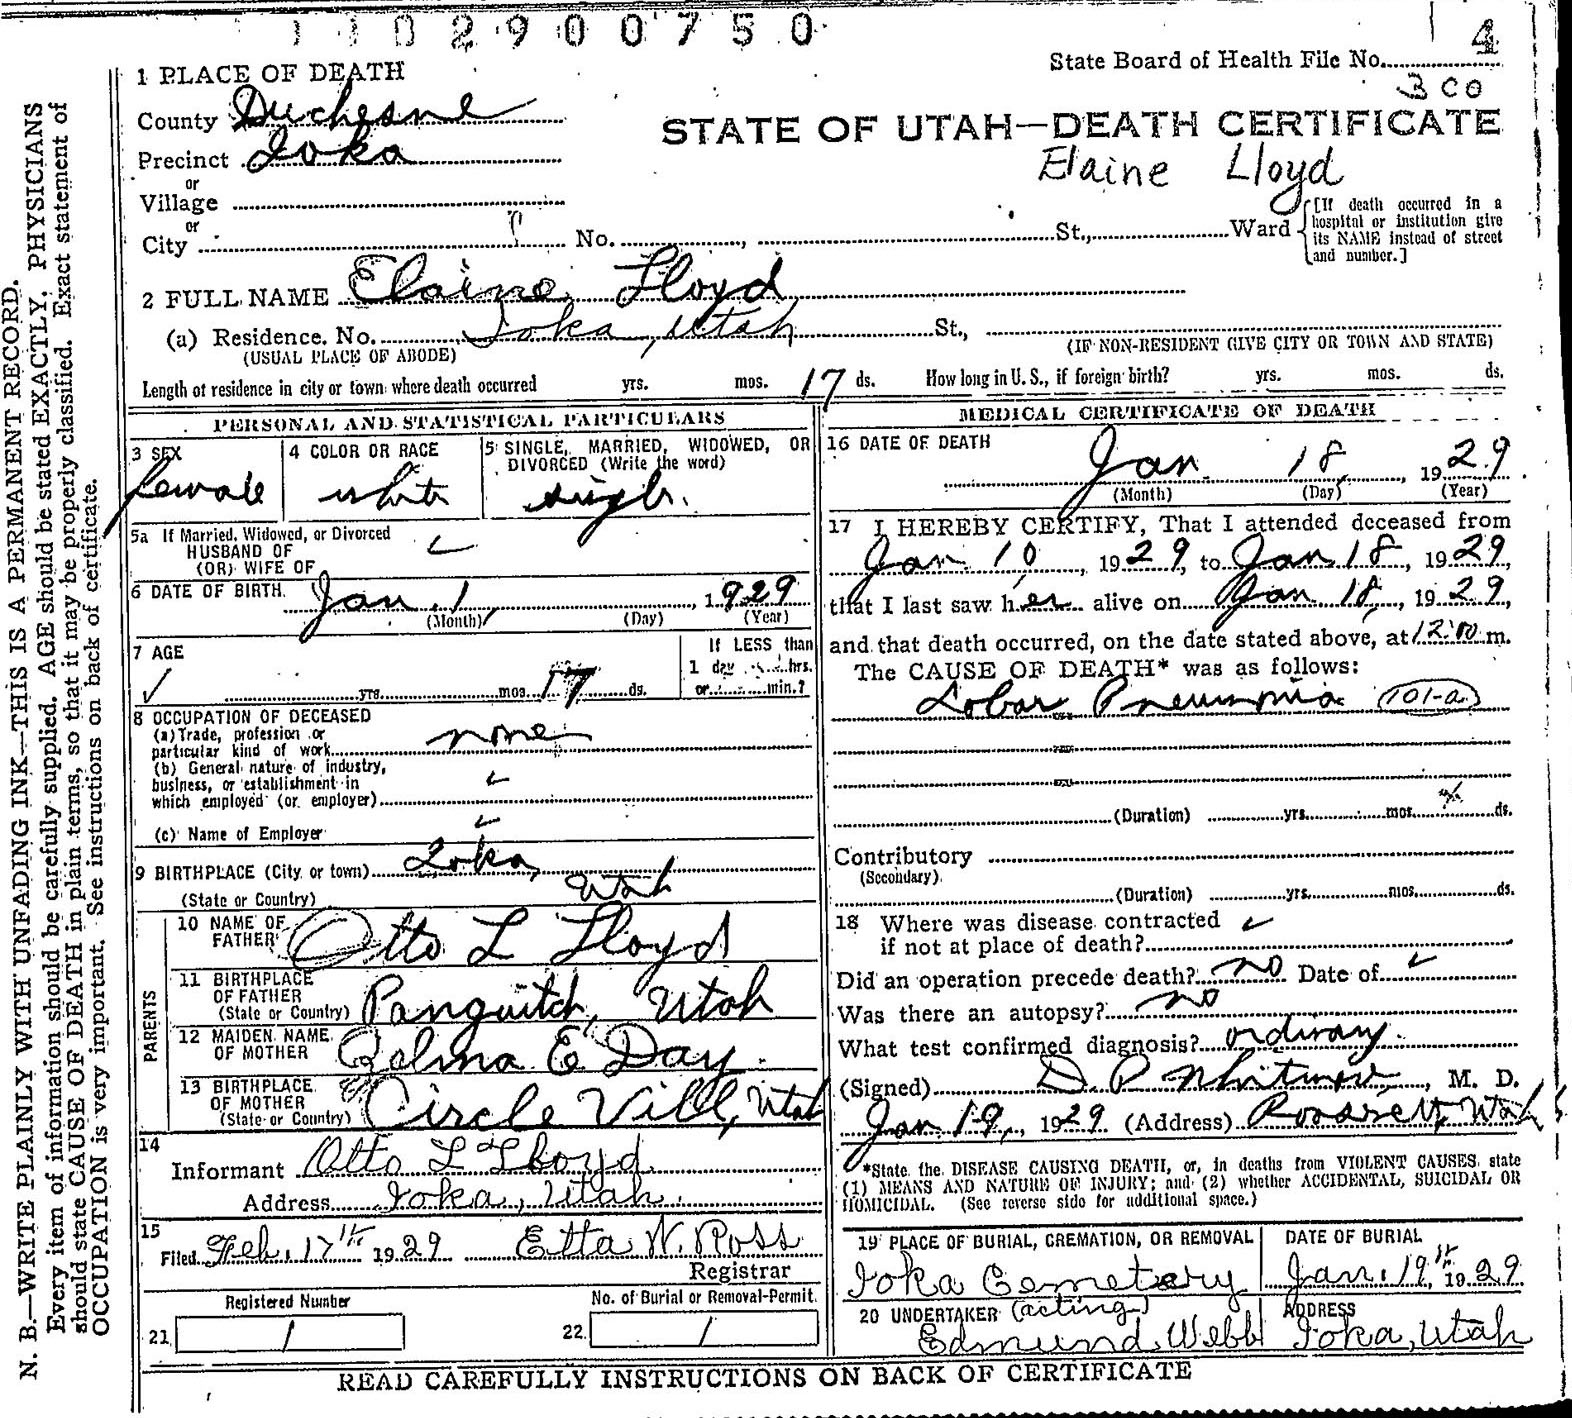 1102900750
4
State Board of Health File No.
3 CO
1 PLACE OF DEATH
County Duchesne
STATE OF UTAH—DEATH CERTIFICATE
Precinct Ioka
Elaine Lloyd
or
Village
or
City No. St., Ward
[If death occurred in a hospital or institution give its NAME instead of street and number.]
2 FULL NAME Elaine Lloyd
(a) Residence. No. Ioka, Utah St.,
(USUAL PLACE OF ABODE) (IF NON-RESIDENT GIVE CITY OR TOWN AND STATE)
Length of residence in city or town where death occurred yrs. mos. 17 ds. How long in U. S., if foreign birth? yrs. mos. ds.
PERSONAL AND STATISTICAL PARTICULARS
3 SEX
female
4 COLOR OR RACE
white
5 SINGLE, MARRIED, WIDOWED, OR
DIVORCED (Write the word)
single.
5a If Married, Widowed, or Divorced
HUSBAND OF
(OR) WIFE OF
6 DATE OF BIRTH Jan. 1, 1929
(Month) (Day) (Year)
7 AGE
yrs. mos. 17 ds.
If LESS than
1 day hrs.
or min.?
8 OCCUPATION OF DECEASED
(a) Trade, profession or
particular kind of work none
(b) General nature of industry,
business, or establishment in
which employed (or employer)
(c) Name of Employer
9 BIRTHPLACE (City or town) Ioka,
(State or Country) Utah
PARENTS
10 NAME OF
FATHER Otto L Lloyd
11 BIRTHPLACE
OF FATHER
(State or Country) Panguitch, Utah
12 MAIDEN NAME
OF MOTHER Zelma E Day.
13 BIRTHPLACE
OF MOTHER
(State or Country) Circle Vill, Utah
14
Informant Otto L Lloyd
Address Ioka, Utah.
15
Filed Feb. 17th 1929 Etta W. Ross
Registrar
Registered Number
21 1
No. of Burial or Removal-Permit.
22. 1
MEDICAL CERTIFICATE OF DEATH
16 DATE OF DEATH
Jan. 18, 1929
(Month) (Day) (Year)
17 I HEREBY CERTIFY, That I attended deceased from
Jan 10, 1929, to Jan 18, 1929,
that I last saw her alive on Jan 18, 1929,
and that death occurred, on the date stated above, at 12:10 m.
The CAUSE OF DEATH* was as follows:
Lobar Pneumonia 101-a
(Duration) yrs. mos. ds.
Contributory
(Secondary)
(Duration) yrs. mos. ds.
18 Where was disease contracted
if not at place of death?
Did an operation precede death? no Date of
Was there an autopsy? no
What test confirmed diagnosis? ordinary.
(Signed) D. P. Whitmore, M. D.
Jan 19, 1929 (Address) Roosevelt, Utah
*State the DISEASE CAUSING DEATH, or, in deaths from VIOLENT CAUSES, state
(1) MEANS AND NATURE OF INJURY; and (2) whether ACCIDENTAL, SUICIDAL OR
HOMICIDAL. (See reverse side for additional space.)
19 PLACE OF BURIAL, CREMATION, OR REMOVAL
Ioka Cemetery
DATE OF BURIAL
Jan. 19th 1929
20 UNDERTAKER (acting)
Edmund Webb
ADDRESS
Ioka, Utah
READ CAREFULLY INSTRUCTIONS ON BACK OF CERTIFICATE
N. B.—WRITE PLAINLY WITH UNFADING INK—THIS IS A PERMANENT RECORD.
Every item of information should be carefully supplied. AGE should be stated EXACTLY. PHYSICIANS
should state CAUSE OF DEATH in plain terms, so that it may be properly classified. Exact statement of
OCCUPATION is very important. See instructions on back of certificate.